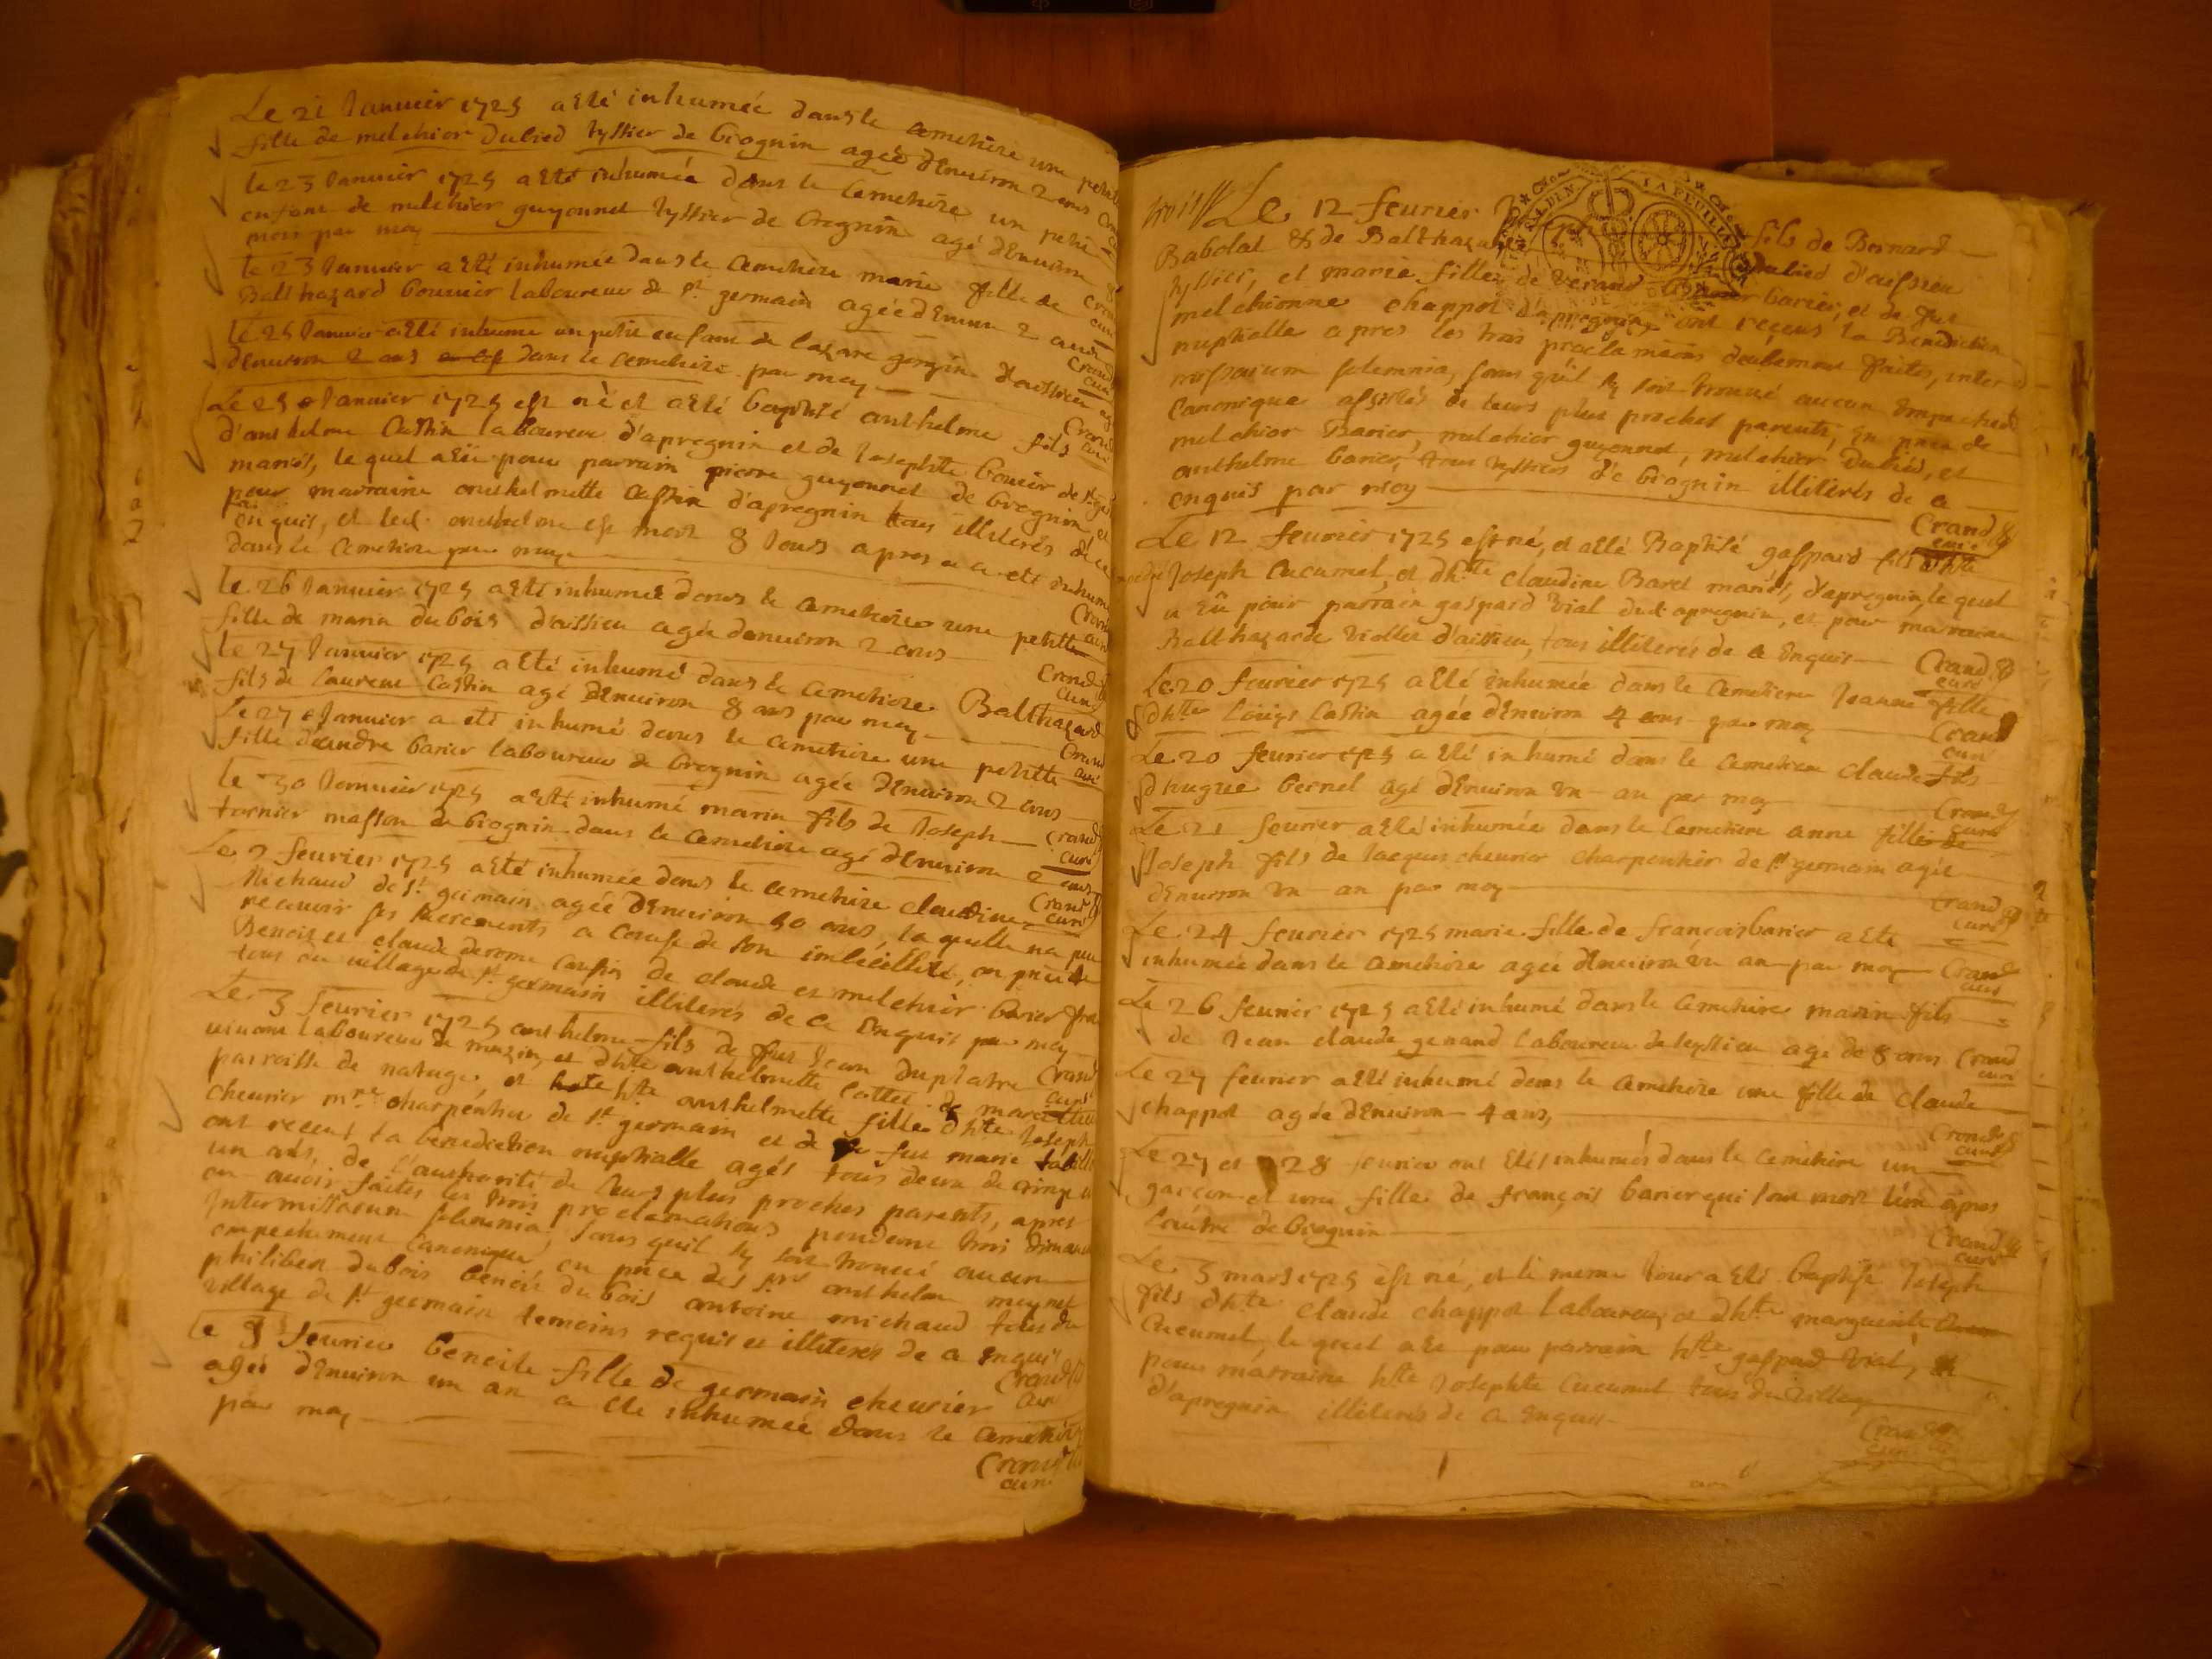 Le 21 Januier 1725 a esté inhumée dans le cemetiere une petite
fille de melchior dubied tyssier de brognin agée d'Enuiron 2 ans
le 23 Januier 1725 a esté inhumée dans le Cemetiere un petit
enfant de melchior guyonnet tyssier de brognin agé d'Enuiron 8
mois par moy
le 23 Januier a esté inhumée dans le cemetiere marie fille de
Balthazard bouuier laboureur de st germain agée d'Enuiron 2 ans
Crand
curé
le 25 Januier a esté inhume un petit enfant de lazare
d'enuiron 2 ans dans le cemetiere par moy
Crand
curé
Le 25 Januier 1725 est né et a esté baptisé anthelme fils
d'anthelme Castin laboureur d'apregnin et de Josephte bouuier de
mariés, le quel a eu pour parrain pierre guyonnet de brognin et
pour marraine anthelmette Castin d'apregnin tous illiterés de ce
par
enquis, et led. anthelme est mort 8 Jours apres et a eté inhumé
dans le cemetiere par moy
Crand
curé
le 26 Januier 1725 a esté inhumée dans le cemetiere une petitte
fille de marin dubois d'aissieu agée denuiron 2 ans
Crand
curé
le 27 Januier 1725 a esté inhumé dans le cemetiere Balthazard
fils de Laurent Castin agé d'Enuiron 8 ans par moy
Crand
curé
Le 27 Januier a eté inhumé dans le cemetiere une petitte
fille d'andre barier laboureur de brognin agée d'Enuiron 2 ans
le 30 Januier 1725 a esté inhumé marin fils de Joseph
Crand
curé
tornier masson de brognin dans le cemetiere agé d'Enuiron 2 ans
Crand
curé
Le 2 feurier 1725 a esté inhumée dans le cemetiere claudine
Michaud de st germain agée d'Enuiron 50 ans, la quelle na peu
receuoir ses sacrements a cause de son imbecillité, en pnce de
Benoit et claude derome cousin de claude et melchior barier
tous du village de st germain illiterés de ce Enquis par moy
Crand
curé
Le 3 feurier 1725 anthelme fils de feu Jean duplatre
viuant laboureur de et dhte anthelmette Collet de
parroisse de natage, et hte anthelmette fille dhte Joseph
cheurier mre charpentier de st germain et de feu marie
ont receus la benediction nuptialle agés tous deux de
un ans, de l'authorité de leurs plus proches parents, apres
en auoir faites les trois proclamations pendant trois dimanches
Intermissarum solemnia, sans quil sy soit trouué aucun
empechement Canonique, en pnce des srs anthelme meynet
philibert dubois benoit dubois antoine michaud tous du
village de st germain temoins requis et illiterés de ce enquis
Crand
curé
le 8 feurier benoite fille de germain cheurier
agée d'Enuiron un an a esté inhumée dans le cemetiere
par moy
Crand
curé
Le 12 feurier fils de Bernard
Babolat & de Balthazarde dubied d'aissieu
tyssier, et marie fille de verand barier, et de feu
melchionne chappot d'apregnin ont reçeus la Benediction
nuptialle apres les trois proclamations deuement faites, inter
missarum solemnia, sans qu'il sy soit trouué aucun Empechemt
Canonique assistés de leurs plus proches parents, En pnce de
melchior Barier, melchior guyonnet, melchior Dubied, et
anthelme barier, tous tyssiers de brognin illiterés de ce
enquis par moy
Crand
curé
Le 12 feurier 1725 est né, et a esté Baptisé gaspard fils dhte
Joseph Cucumel, et dhte claudine Baret mariés, d'apregnin, le quel
a Eû pour parrain gaspard Vial dud. apregnin, et pour marraine
Balthazarde Viollet d'aissieu, tous illiterés de ce Enquis
Crand
curé
Le 20 feurier 1725 a esté inhumée dans le Cemetiere Jeanne fille
dhte Louys Castin agée d'Enuiron 4 ans par moy
Crand
curé
Le 20 feurier 1725 a esté inhumé dans le cemetiere claude fils
d'hugue bernel agé d'Enuiron Un an par moy
Crand
curé
Le 21 feurier a esté inhumée dans le Cemetiere anne fille de
Joseph fils de Jacques cheurier charpentier de st germain agée
d'Enuiron Un an par moy
Crand
curé
Le 24 feurier 1725 marie fille de françois barier a esté
inhumée dans le cemetiere agée d'Enuiron Un an par moy
Crand
curé
Le 26 feurier 1725 a esté inhumé dans le cemetiere marin fils
de Jean claude genand laboureur de leyssieu agé de 8 ans
Crand
curé
Le 27 feurier a esté inhumé dans le Cemetiere une fille de claude
chappot agée d'Enuiron 4 ans,
Crand
curé
Le 27 et 28 feurier ont Estés inhumés dans le Cemetiere un
garçon et une fille de françois barier qui sont mort l'un apres
l'autre de brognin
Crand
curé
Le 3 mars 1725 est né, et le meme Jour a esté baptisé Joseph
fils dhte claude chappot laboureur, et dhte marguerite
Cucumel, le quel a eu pour parrain hte gaspard Vial,
pour marraine hte Josephte Cucumel tous du village
d'apregnin illiterés de ce Enquis
Crand
curé